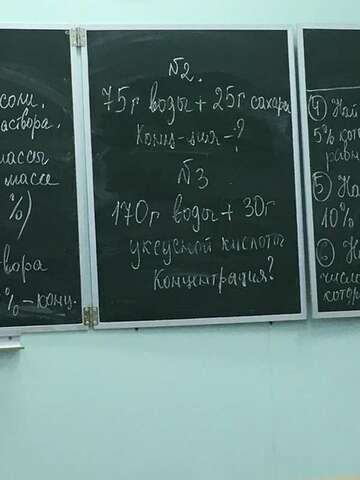 соли.
аствора.
массы
массе
%)
вора
% - конц.
№2.
75г воды + 25г сахара
Конц-ция - ?
№3
170г воды + 30г
уксусной кислоты
Концентрация?
④ Най
5% кот
равн
⑤ На
10%
⑥ На
число
котор